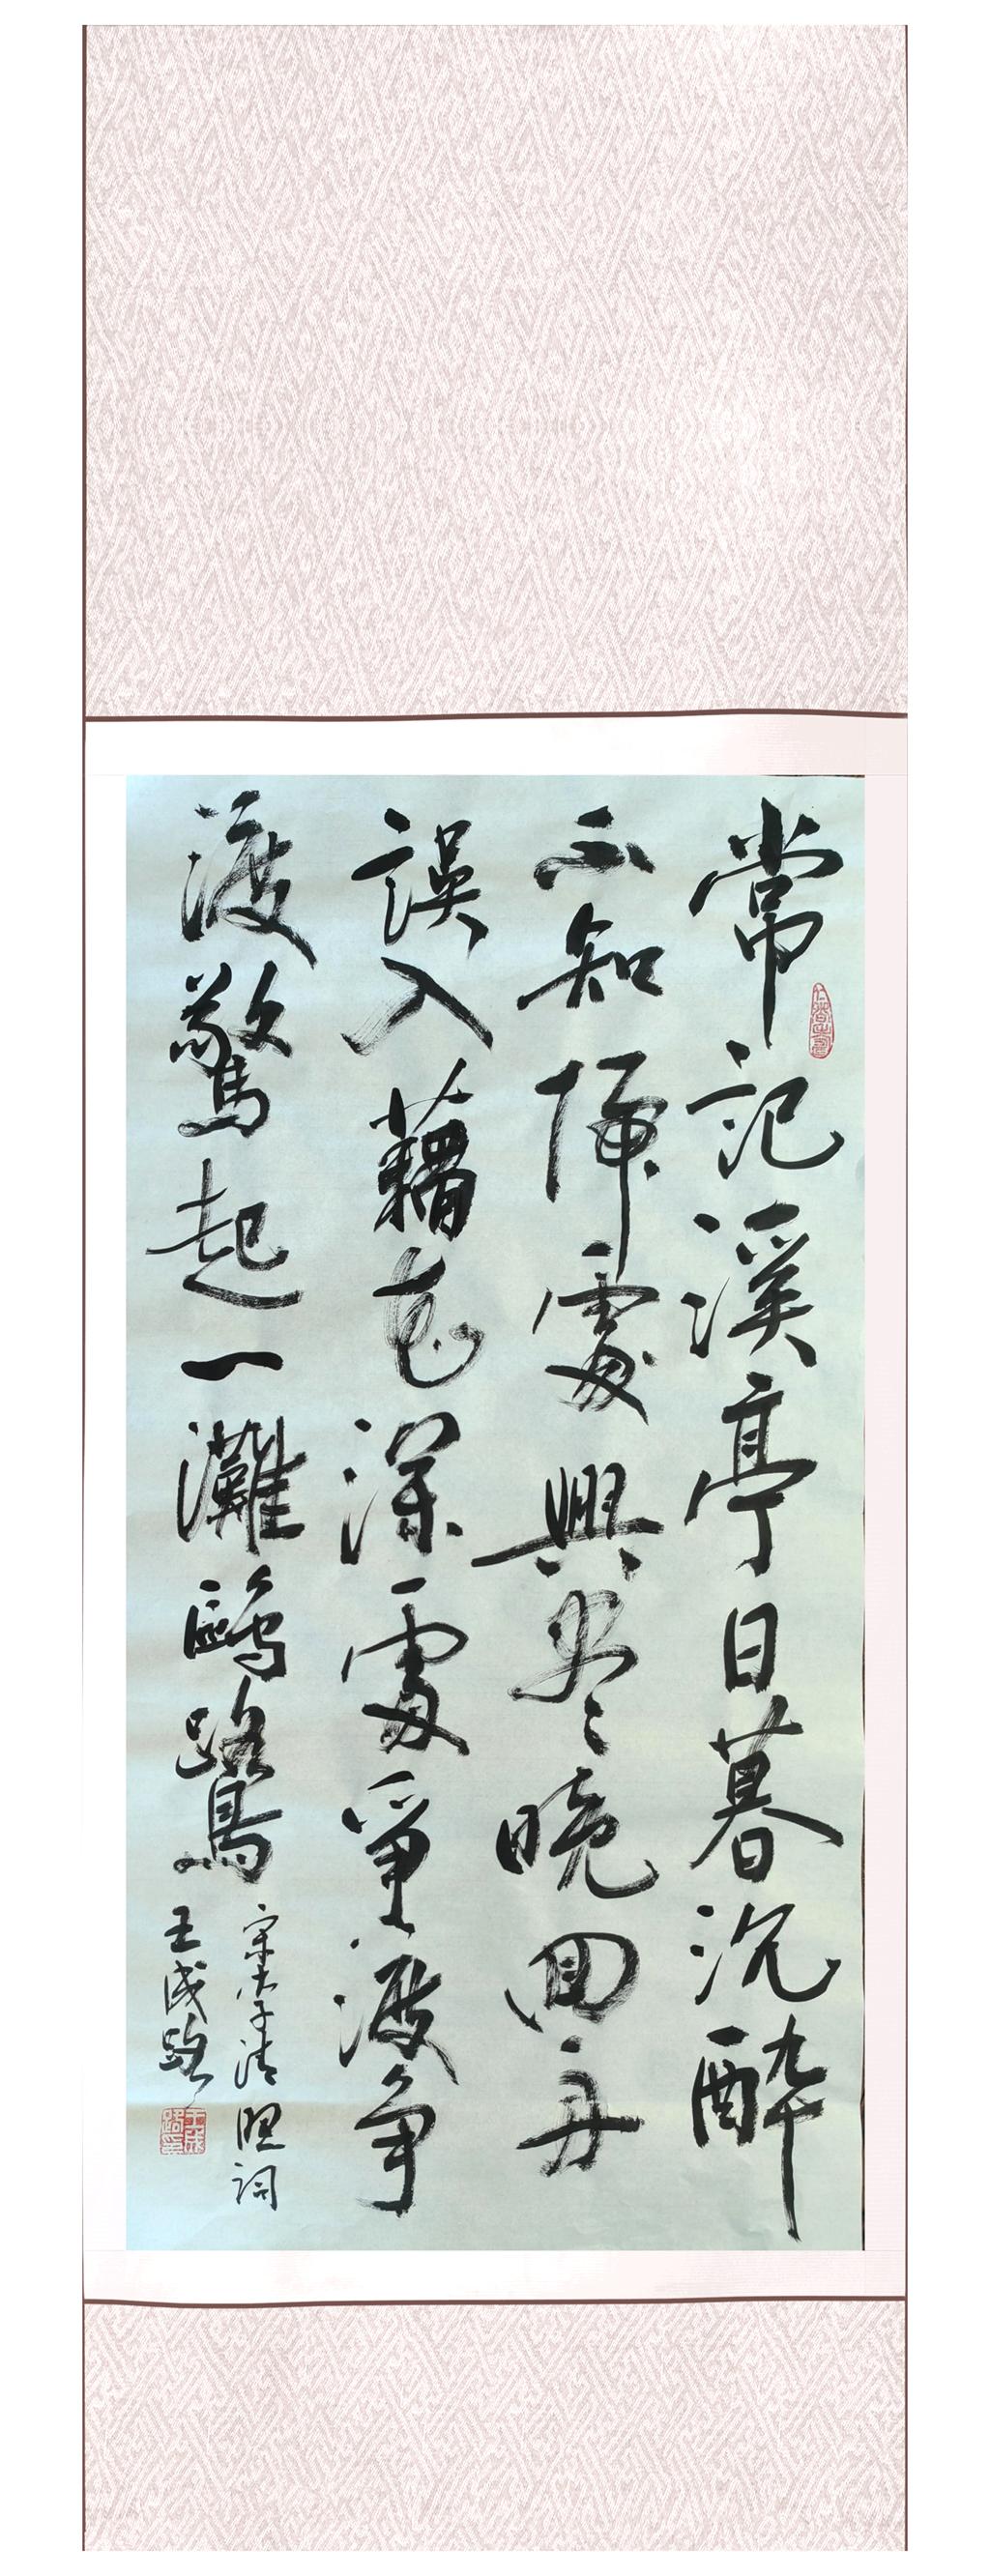 常記溪亭日暮沉醉
不知歸處興尽晚回舟
誤入藕花深處爭渡争
渡驚起一灘鷗鷺
宋李清照詞
王成路
王成路印